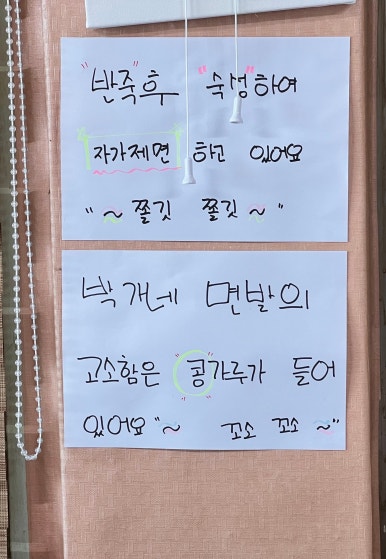 "반죽"후 "숙성"하여
자가제면 하고 있어요
"~ 쫄깃 쫄깃 ~"
박가네 면발의
고소함은 "콩"가루가 들어
있어요 "~ 꼬소 꼬소 ~"